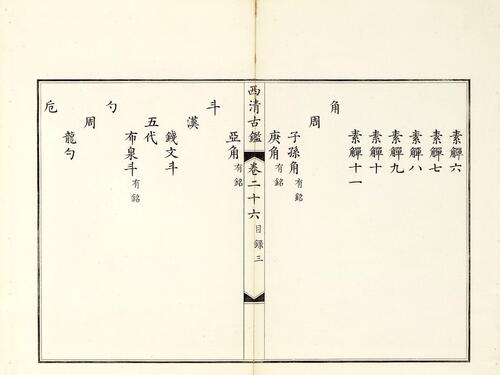 素觶六
素觶七
素觶八
素觶九
素觶十
素觶十一
角
周
子孫角有銘
庚角有銘
西清古鑑 卷二十六 目錄 三
亞角有銘
斗
漢
錢文斗
五代
布泉斗有銘
勺
周
龍勺
卮